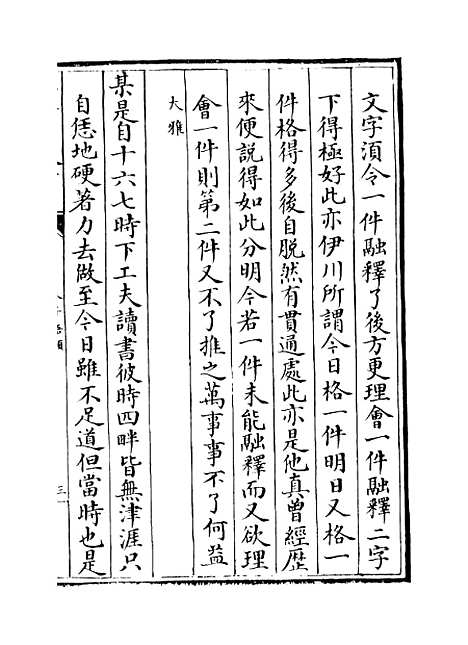 文字須令一件融釋了後方更理會一件融釋二字
下得極好此亦伊川所謂今日格一件明日又格一
件格得多後自脫然有貫通處此亦是他真曾經歷
來便說得如此分明今若一件未能融釋而又欲理
會一件則第二件又不了推之萬事事不了何益
大雅
某是自十六七時下工夫讀書彼時四畔皆無津涯只
自恁地硬著力去做至今日雖不足道但當時也是